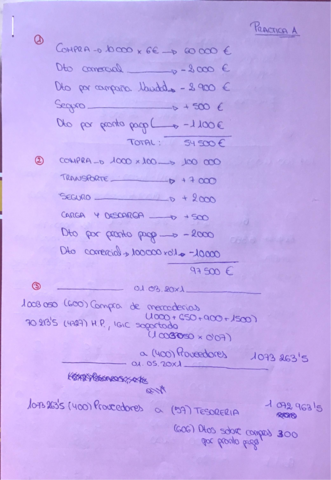 PRACTICA 1
①
COMPRA → 10000 x 6€ → 60 000 €
Dto comercial → -2000 €
Dto por campaña → -2900 €
Seguro → +500 €
Dto por pronto pago → -1100 €
TOTAL: 54 500 €
② COMPRA → 1000 x 100 → 100 000
TRANSPORTE → +7000
SEGURO → +2000
CARGA Y DESCARGA → +500
Dto por pronto pago → -2000
Dto comercial → 100000 x 0'1 → -10000
97 500 €
③ 01.03.20x1
1003 050 (600) Compra de mercaderías
(1000 + 650 + 900 + 1500)
70 213'5 (4727) H.P, IGIC soportado
(1003050 x 0'07)
a (400) Proveedores 1073 263'5
01.05.20x1
1073 263'5 (400) Proveedores a (57) TESORERIA 1 072 963'5
(606) Dtos sobre compras 300
por pronto pago